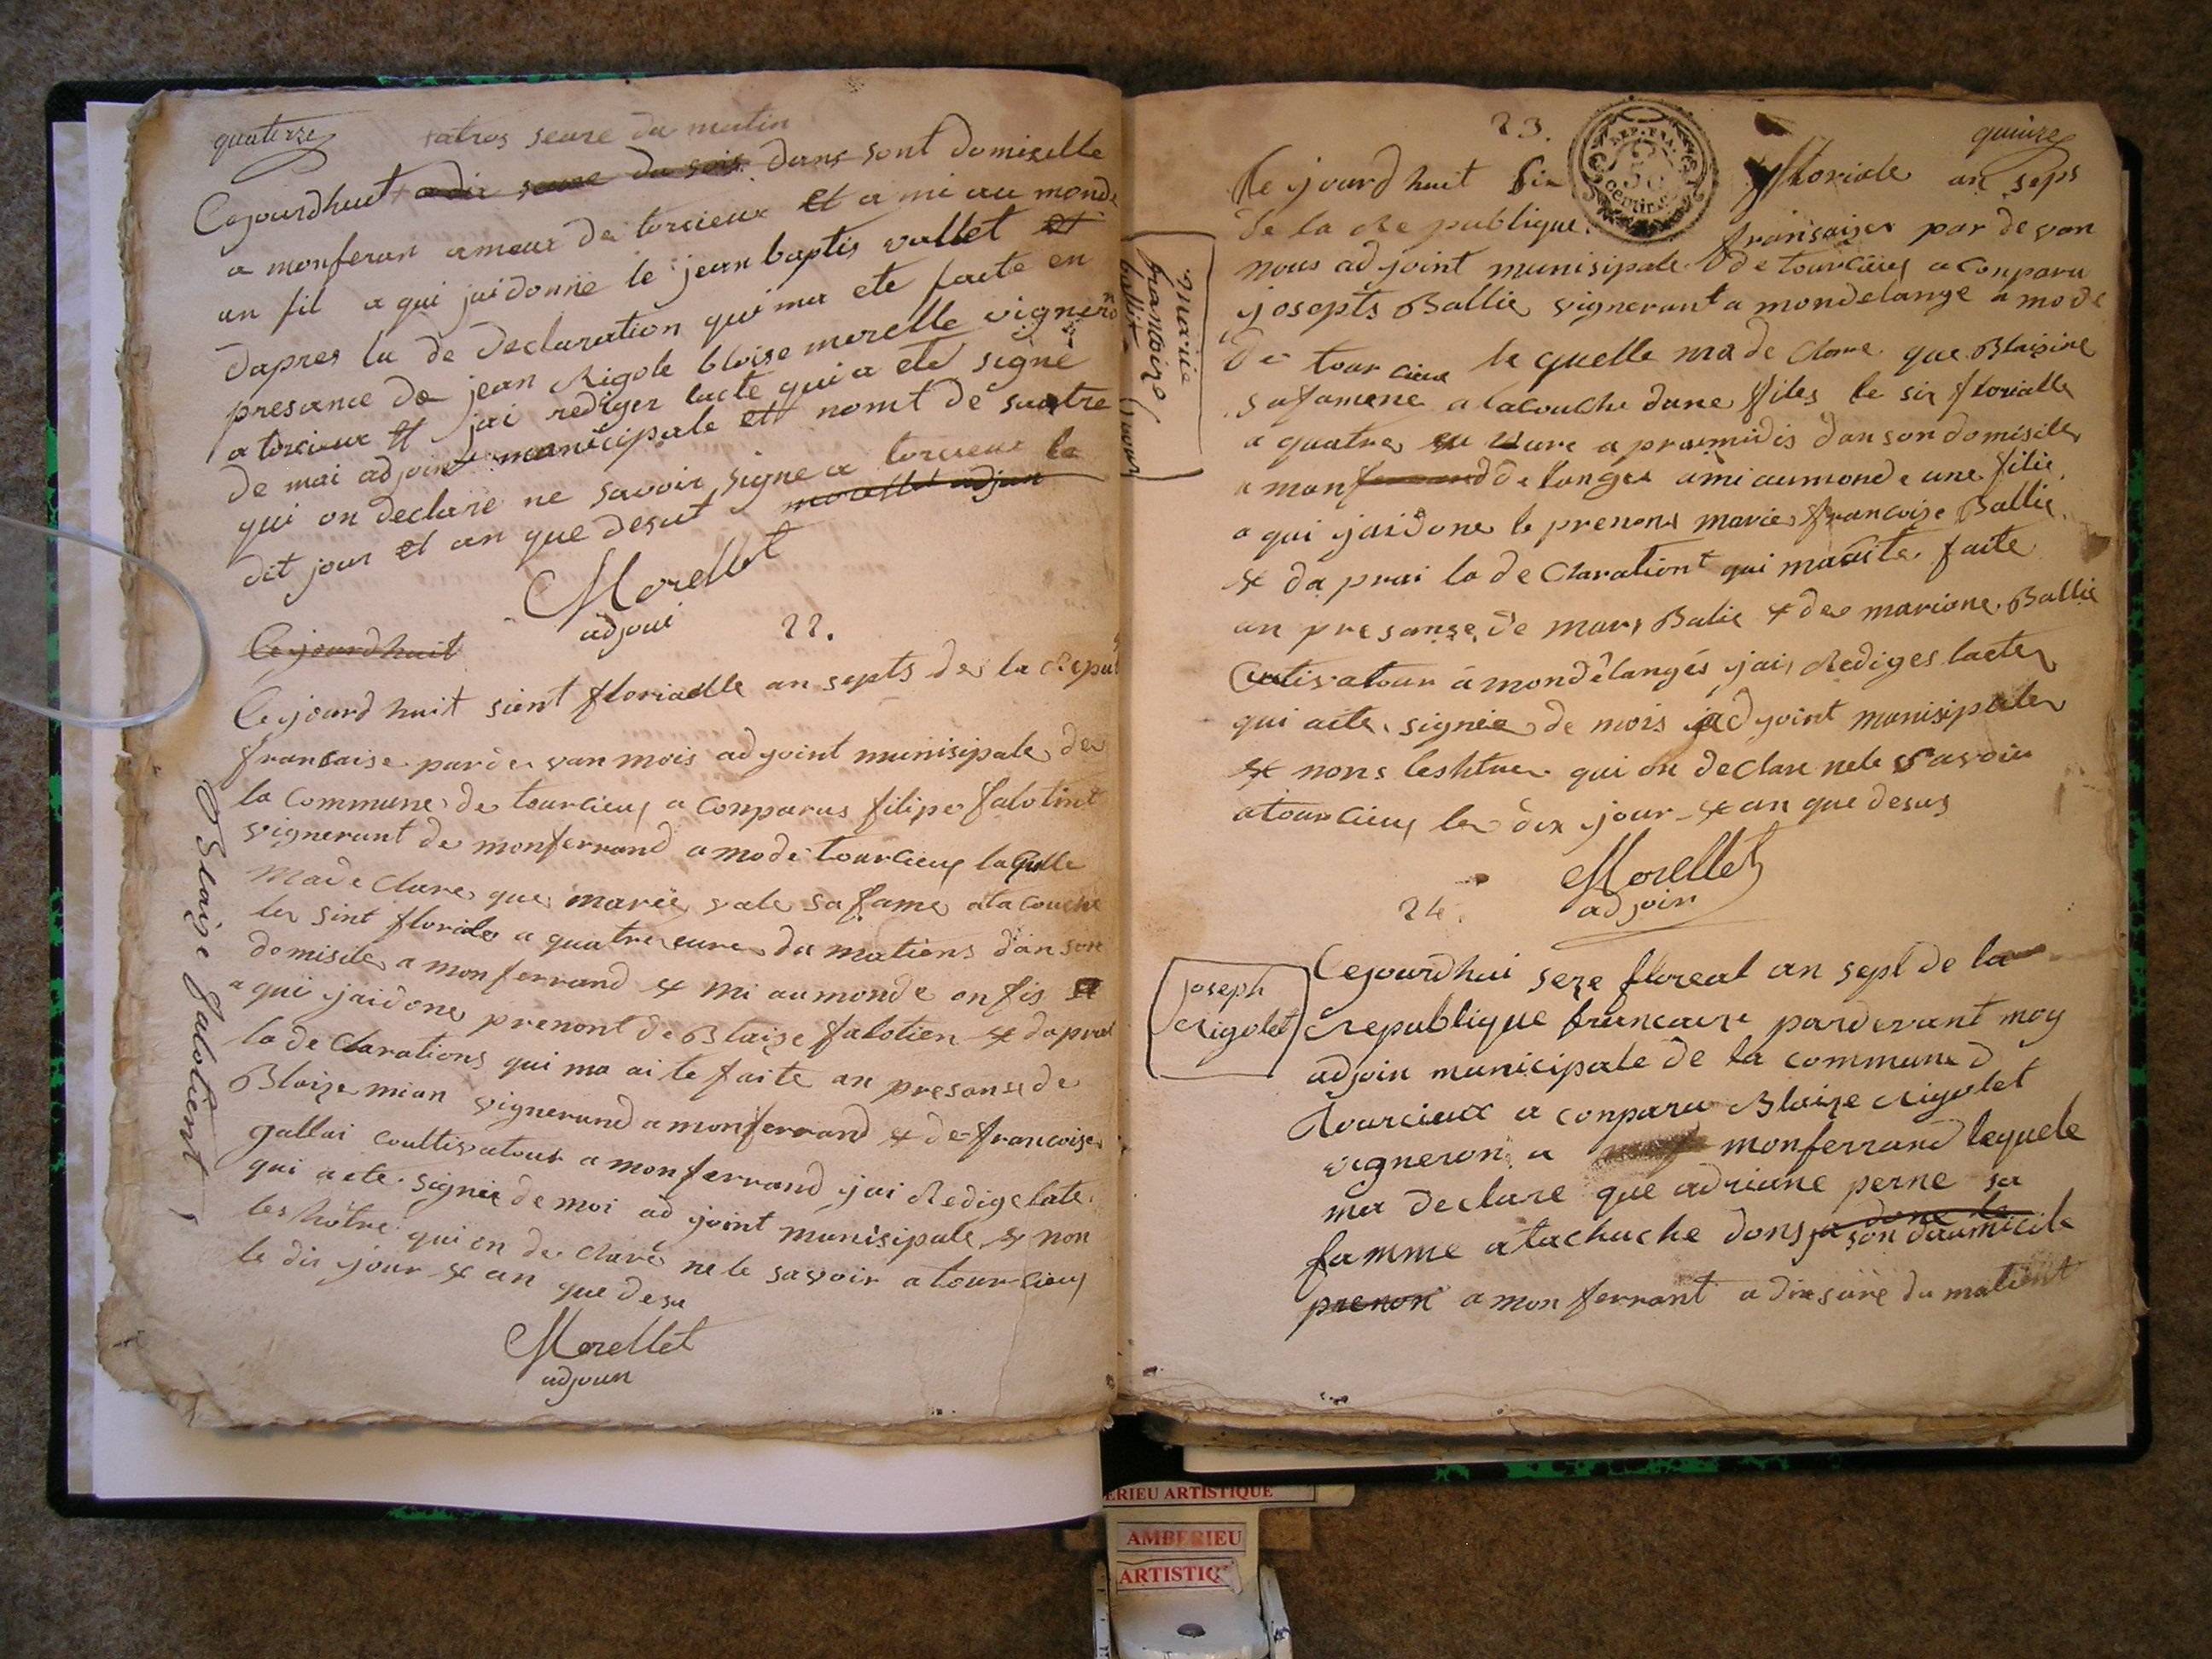 quatorze
satros seure du matin
Cejourdhuit a dix seure du soir dans sont domiselle
a monferan ameau de torcieux et a mi au monde
un fil a qui jai donné le jean baptis vallet et
dapres la de declaration qui ma ete faite en
presance de jean Rigole bloise morelle vignero
a torcieux et jai rediger lacte qui a eté signé
de moi adjoint municipale et nomt de suatre
qui on declare ne savoir signe a torcieux le
dit jour et an que desut morellet adjoin
Morellet
adjoui
22.
Cejourdhuit
Cejourd huit sient floriadlle an septs de la Repu
francaise par de van mois adjoint munisipale de
la Commune de tourcieux a Conparus filipe falotint
vignerant de monferrand a mode tourcieux laqulle
Made Clare que marie vale sa fame ata couche
le sint floride a quatre eure du matiens dan son
domisile a monferrand & mi au monde on fis
a qui jaidone prenont de Blaise falotien & daprai
la de Clarations qui ma aite faite an presanse de
Blaize mian vignerand a monferrand & de francoise
gallai coultivatour a monferrand jai Redige late
qui a ete signée de moi ad joint munisipale & non
les hôtre qui on de claré ne le savoir a tourcieux
le dis jour & an que desu
Morellet
adjoun
Blaize falotient
23.
quinze
REP. FRA.
centim.
Ce jourd huit six floriale an seps
de la Re publique fransaises par de van
nous ad joint munisipale de tourcieux a Conparu
josepts Ballie vignerant a mondelange a mode
de tour cieux la quelle ma de Clare que Blaisine
sa famene a lacouche dune files le six florialle
a quatre eu eure a praimidis dan son domisile
a monferrand de langes a mi au monde une filie
a qui jaidone le prenons marie francoise Ballie
& da prai la de Clarationt qui ma aite faite
an presanse de marx Balie & de mariane Ballie
Cultivatour a mondélangés jai Rediges lacte
qui aite signée de mois adjoint manisipale
& nons leshtue qui on de Clare nele savoir
atourcieux le dix jour & an que desus
Morellet
adjoin
marie
francoise
ballie
24.
Joseph
Rigolet
Cejourdhui seze floreal an sept de la
Republique francaize pardevant moy
adjoin municipale de la commune d
tourcieux a conparu Blaize rigolet
vigneron a monferrand lequele
ma declare que adriane perne sa
famme atachuche dons ja done le
son daumicile
prenon a mon ferrant a dix sure du matient
ERIEU ARTISTIQUE
AMBERIEU
ARTISTIQ